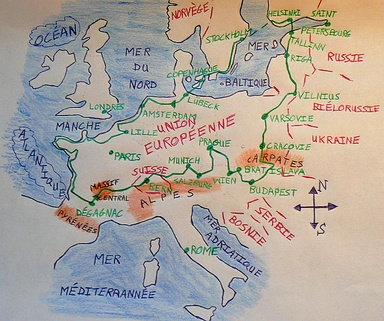 NORVÈGE
HELSINKI
SAINT
PETERSBOURG
STOCKHOLM
TALLINN
OCÉAN
MER
DU
NORD
MER
BALTIQUE
RIGA
RUSSIE
COPENHAGUE
LUBECK
VILNIUS
BIÉLORUSSIE
LONDRES
AMSTERDAM
VARSOVIE
MANCHE
LILLE
UNION
EUROPÉENNE
UKRAINE
ATLANTIQUE
PARIS
PRAGUE
CRACOVIE
CARPATES
SUISSE
MUNICH
BRATISLAVA
MASSIF
CENTRAL
BERN
SALZBURG
WIEN
BUDAPEST
ALPES
DÉGAGNAC
PYRÉNÉES
SERBIE
BOSNIE
N
S
MER
ADRIATIQUE
ROME
MER
MÉDITERRANNÉE